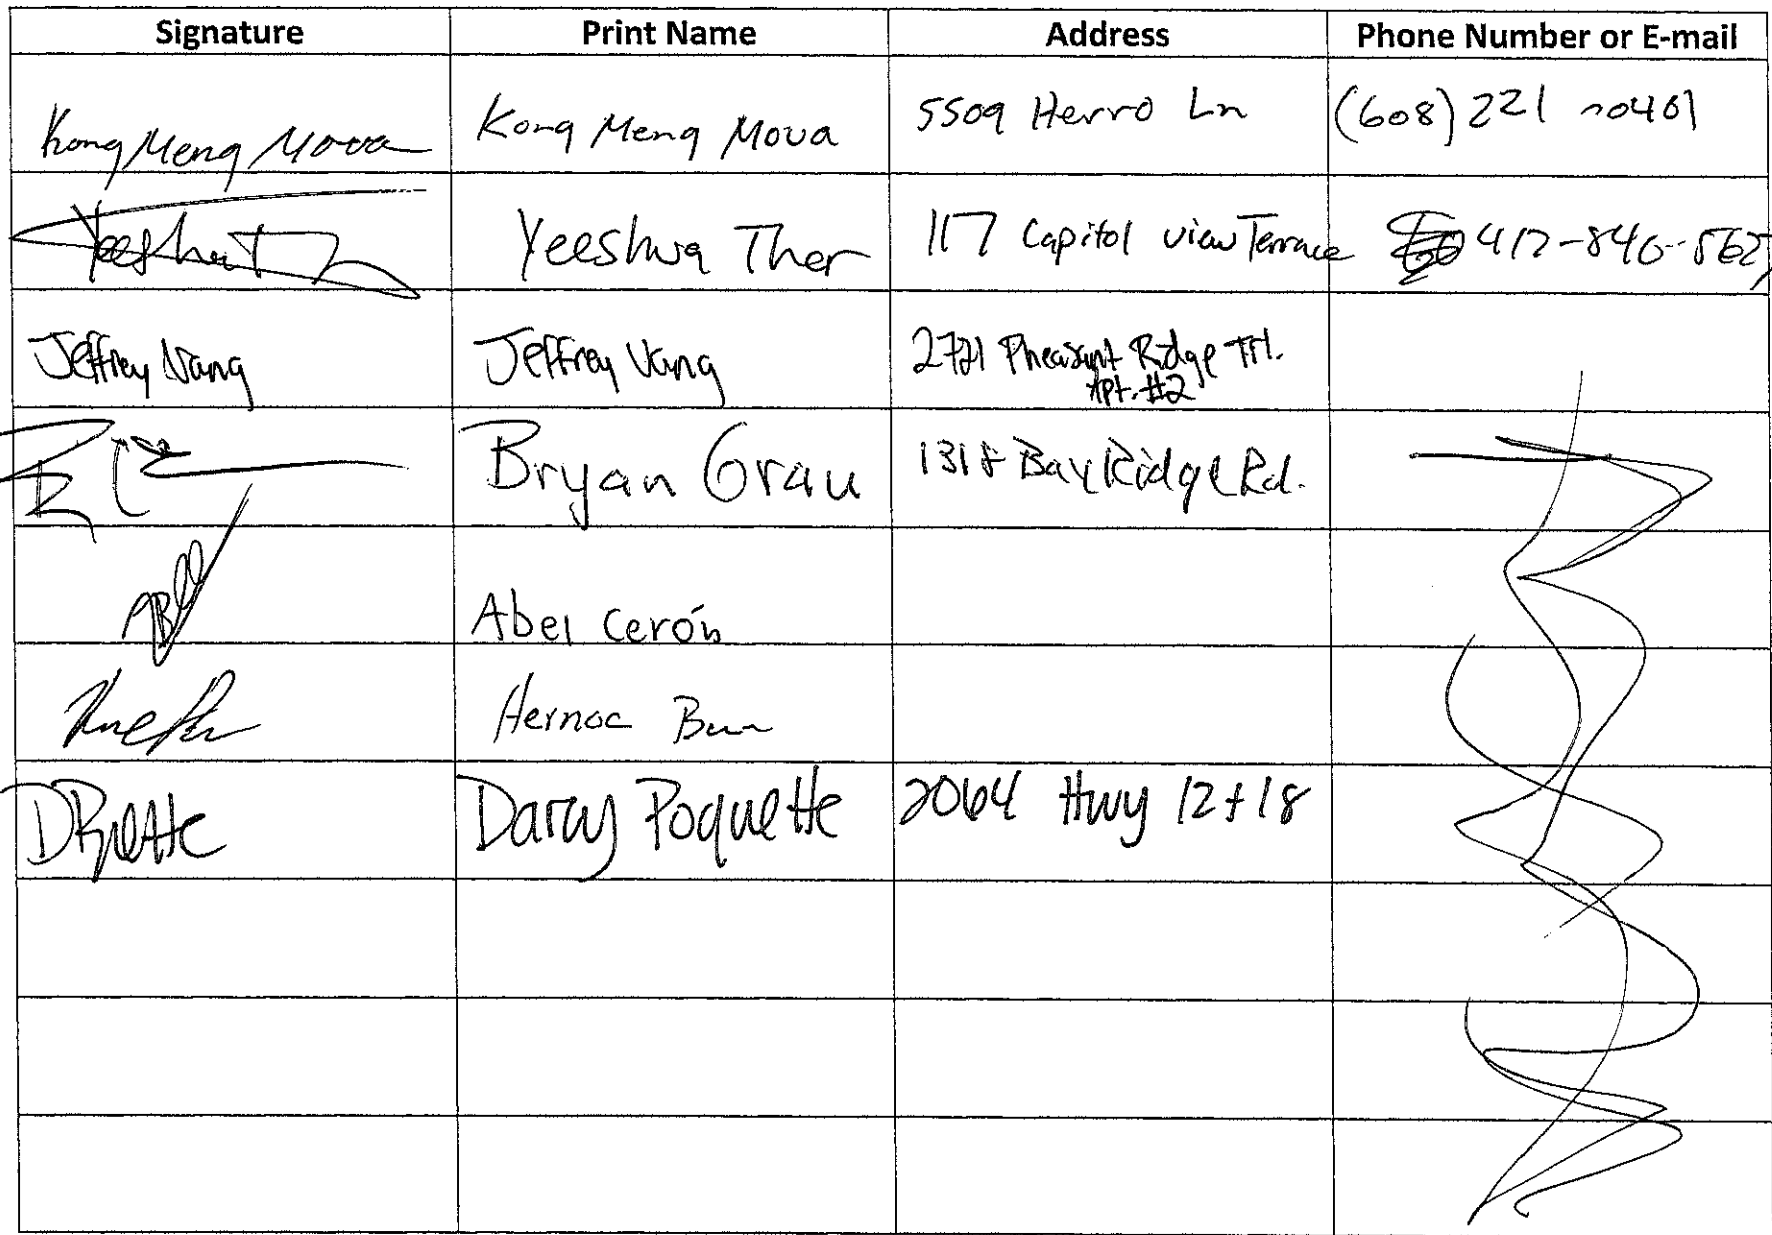 Signature Print Name Address Phone Number or E-mail
Kong Meng Moua Kong Meng Moua 5509 Herro Ln (608) 221 -0401
Yeeshua Ther 117 Capitol view Terrace 417-846-
Jeffrey Vang Jeffrey Vang 2721 Pheasant Ridge Trl.
Apt. #2
Bryan Grau 1318 Bay Ridge Rd.
Abel Cerón
Darcy Poquette 2064 Hwy 12+18